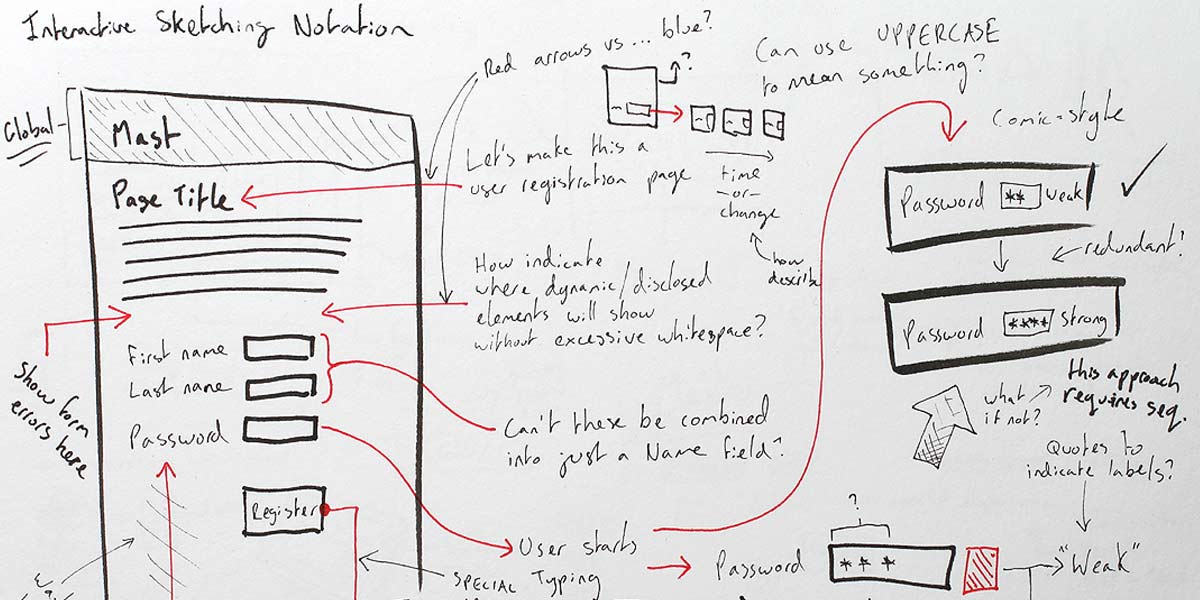 Interactive Sketching Notation
Global
Mast
Page Title
First name
Last name
Password
Register
Show form
errors here
Red arrows vs ... blue?
?
Let's make this a
user registration page
time
-or-
change
how
describe
How indicate
where dynamic/disclosed
elements will show
without excessive whitespace?
Can't these be combined
into just a Name field?
User starts
SPECIAL Typing
Can use UPPERCASE
to mean something?
Comic-style
Password ** weak
redundant?
Password **** Strong
what
if not?
this approach
requires seq.
Quotes to
indicate labels?
?
Password * * *
"Weak"